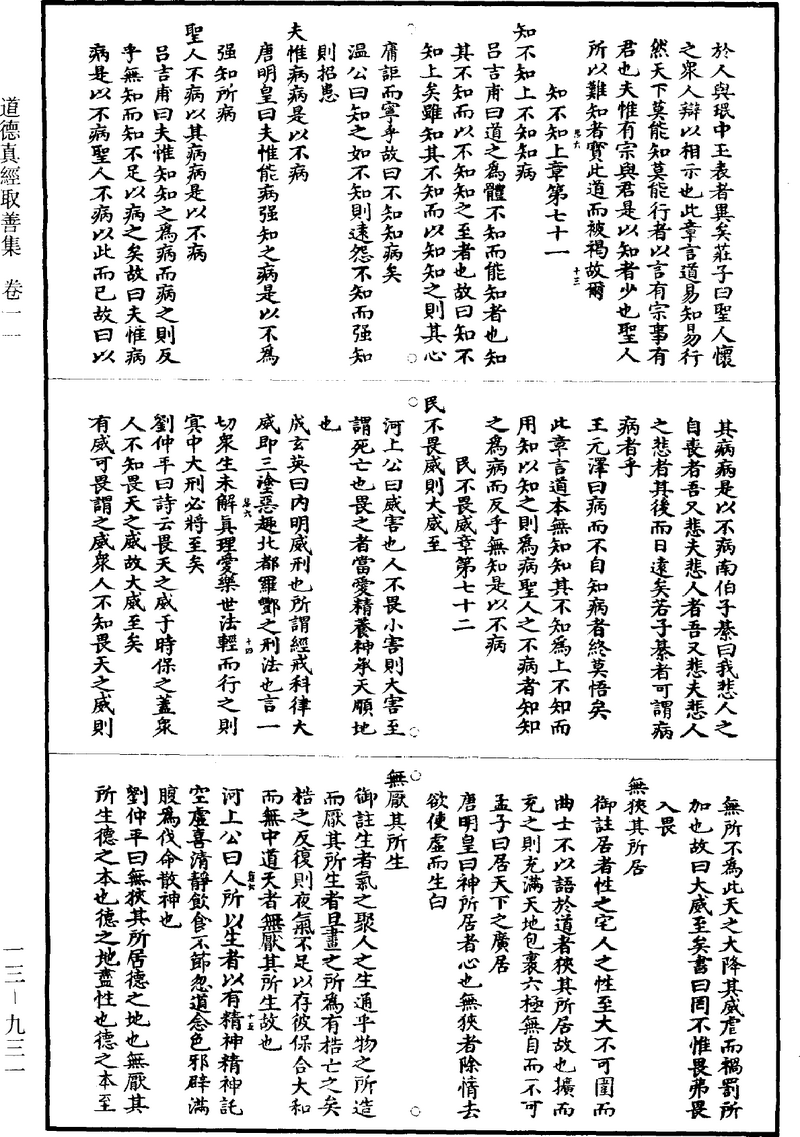 道德真經取善集　卷一一
一三－九三一
於人與珉中玉表者異矣莊子曰聖人懷
之衆人辯以相示也此章言道易知易行
然天下莫能知莫能行者以言有宗事有
君也夫惟有宗與君是以知者少也聖人
所以難知者寳此道而被褐故爾
知不知上章第七十一
知不知上不知知病
呂吉甫曰道之爲體不知而能知者也知
其不知而以不知知之至者也故曰知不
知上矣雖知其不知而以知知之則其心
庮詎而寧乎故曰不知知病矣
温公曰知之如不知則遠怨不知而强知
則招患
夫惟病病是以不病
唐明皇曰夫惟能病强知之病是以不爲
强知所病
聖人不病以其病病是以不病
呂吉甫曰夫惟知知之爲病而病之則反
乎無知而知不足以病之矣故曰夫惟病
病是以不病聖人不病以此而已故曰以
其病病是以不病南伯子綦曰我悲人之
自喪者吾又悲夫悲人者吾又悲夫悲人
之悲者其後而日遠矣若子綦者可謂病
病者乎
王元澤曰病而不自知病者終莫悟矣
此章言道本無知知其不知爲上不知而
用知以知之則爲病聖人之不病者知知
之爲病而反乎無知是以不病
民不畏威章第七十二
民不畏威則大威至
河上公曰威害也人不畏小害則大害至
謂死亡也畏之者當愛精養神承天順地
也
成玄英曰内明威刑也所謂經戒科律大
威即三塗惡趣北都羅酆之刑法也言一
切衆生未解真理愛樂世法輕而行之則
㝠中大刑必將至矣
劉仲平曰詩云畏天之威于時保之蓋衆
人不知畏天之威故大威至矣
有威可畏謂之威衆人不知畏天之威則
無所不爲此天之大降其威虐而禍罰所
加也故曰大威至矣書曰罔不惟畏弗畏
入畏
無狹其所居
御註居者性之宅人之性至大不可圍而
曲士不以語於道者狹其所居故也擴而
充之則充滿天地包裹六極無自而不可
孟子曰居天下之廣居
唐明皇曰神所居者心也無狹者除情去
欲使虛而生白
無厭其所生
御註生者氣之聚人之生通乎物之所造
而厭其所生者旦晝之所爲有梏亡之矣
梏之反復則夜氣不足以存彼保合大和
而無中道夭者無厭其所生故也
河上公曰人所以生者以有精神精神託
空虛喜清靜飲食不節忽道念色邪辟滿
腹爲伐命散神也
劉仲平曰無狹其所居德之地也無厭其
所生德之本也德之地盡性也德之本至